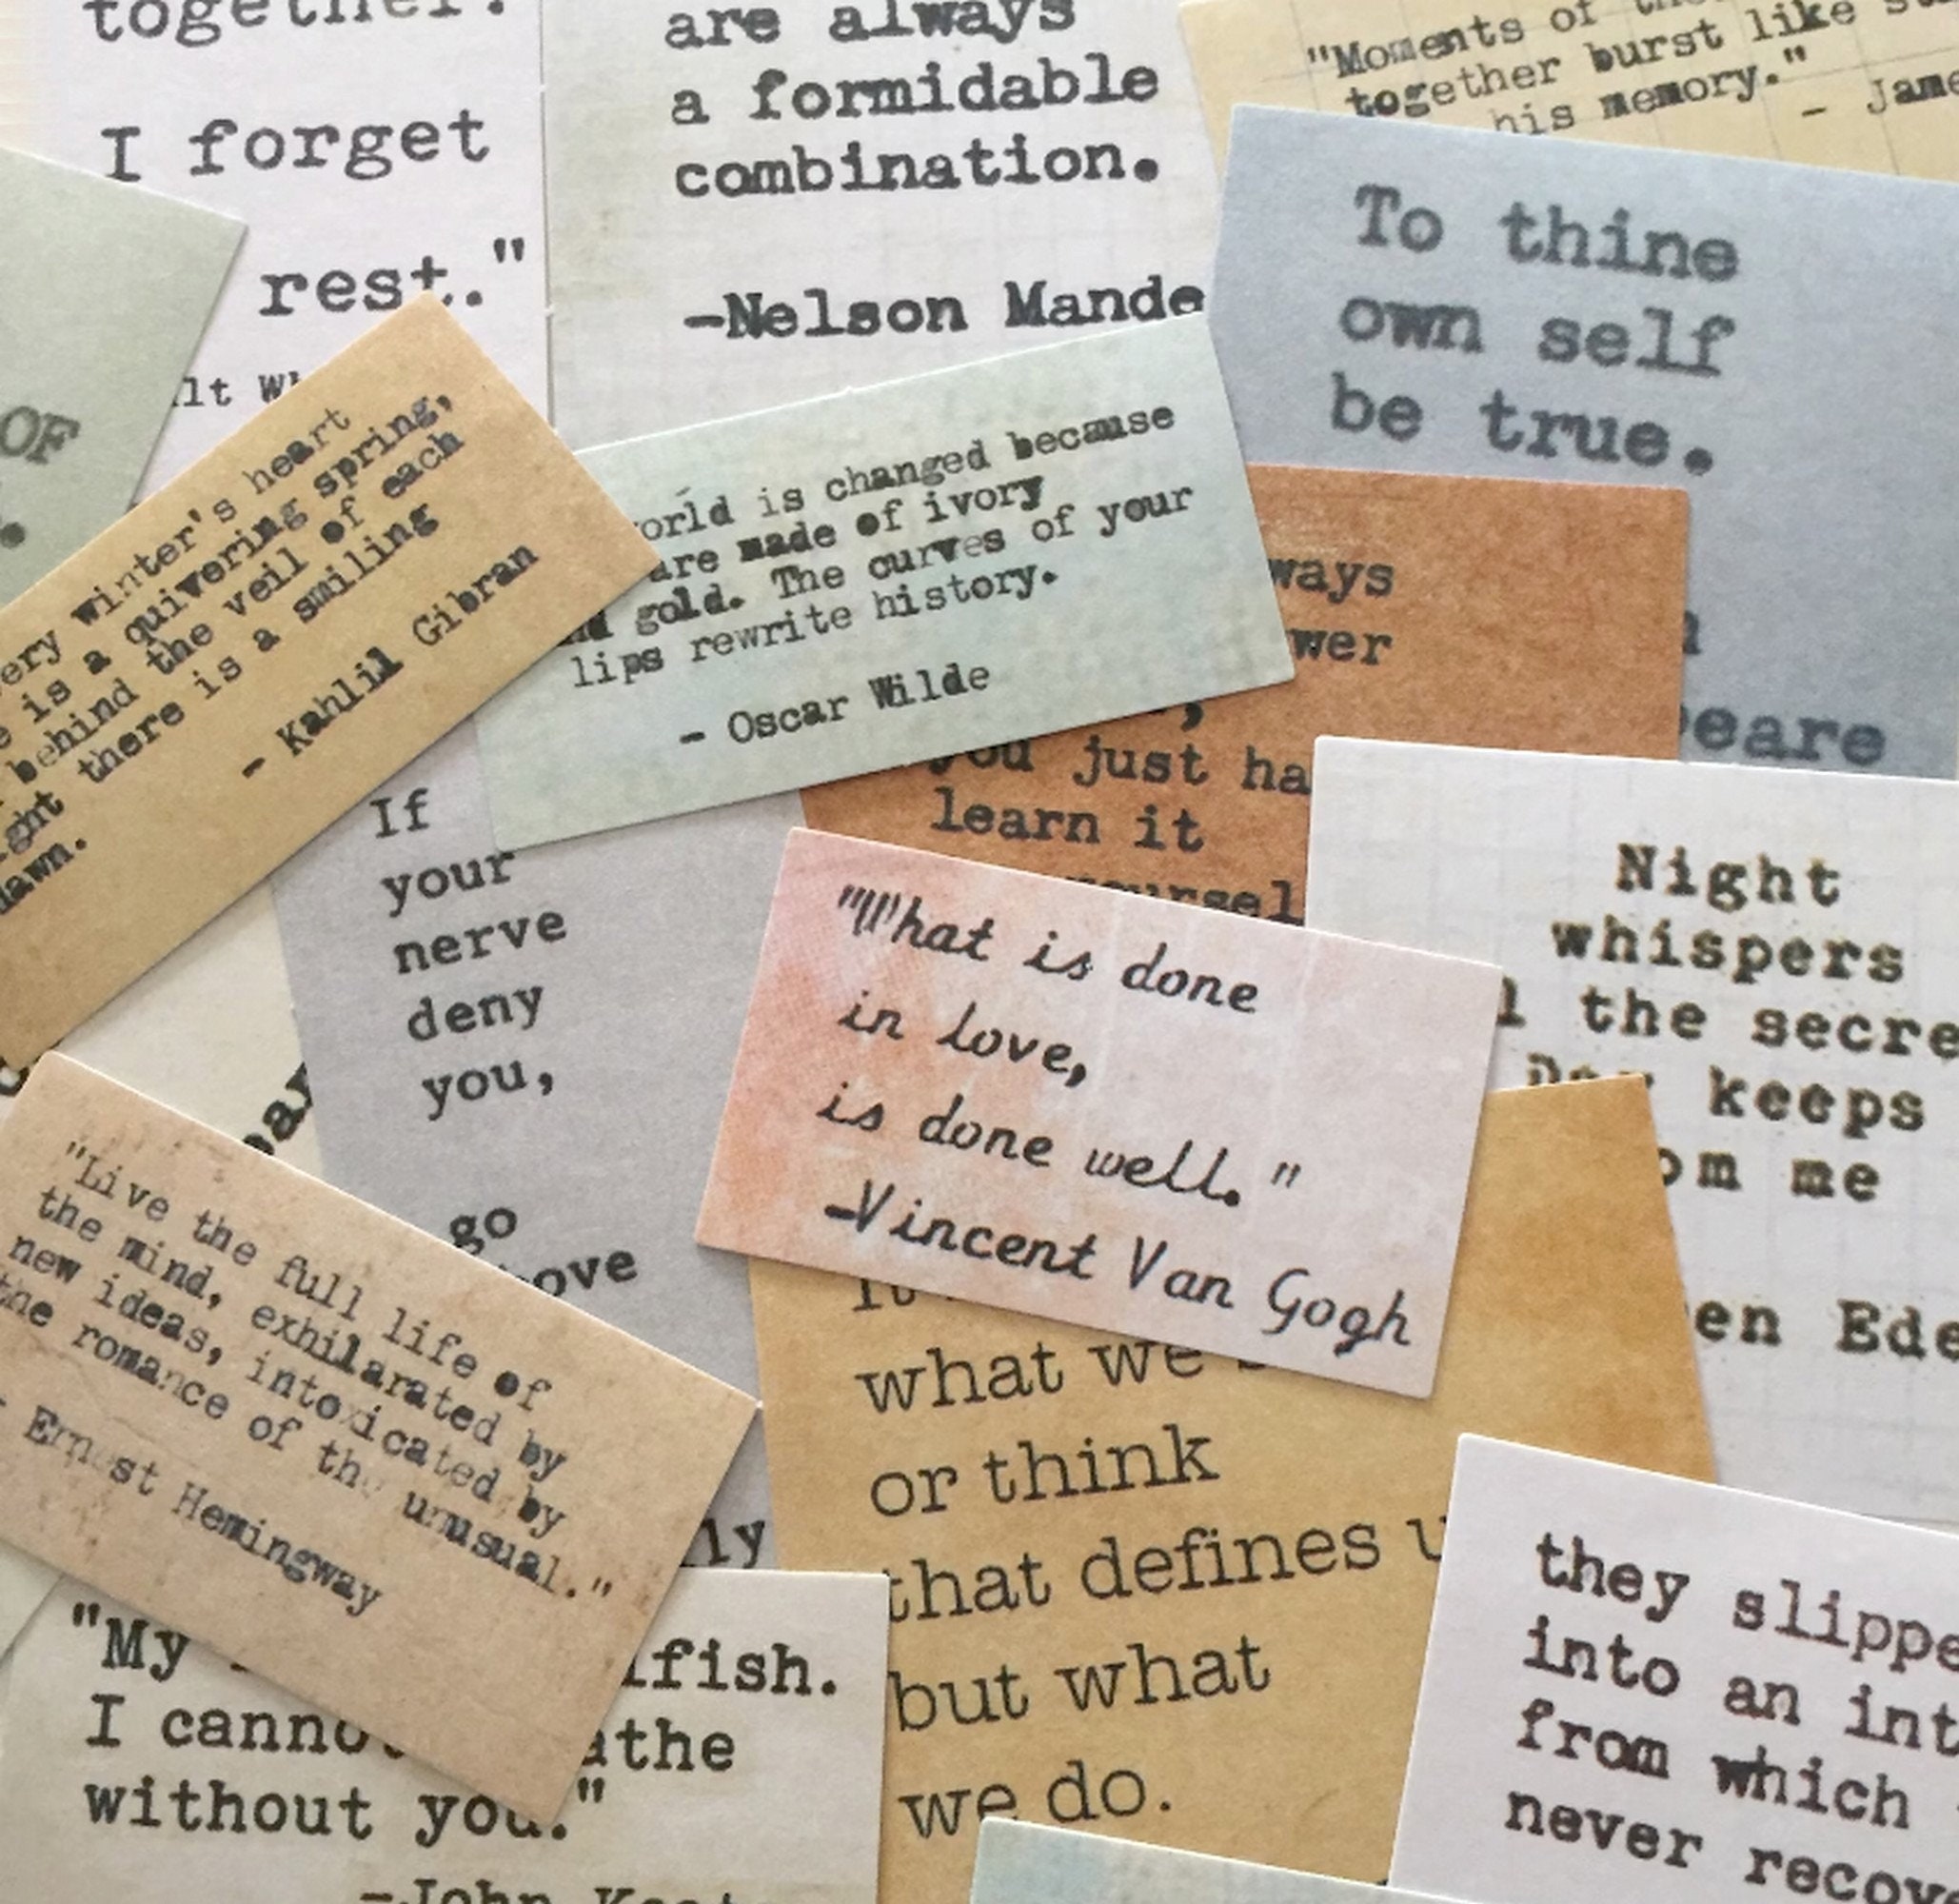 together.
I forget
rest."
are always
a formidable
combination.
-Nelson Mande
"Moments of
together burst like
his memory."
- Jame
To thine
own self
be true.
peare
OF
winter's heart
is a quivering spring,
behind the veil of each
there is a smiling
dawn.
- Kahlil Gibran
orld is changed because
are made of ivory
gold. The curves of your
lips rewrite history.
- Oscar Wilde
ways
wer
you just ha
learn it
If
your
nerve
deny
you,
go
ove
ly
"What is done
in love,
is done well."
-Vincent Van Gogh
Night
whispers
the secre
Day keeps
om me
en Ede
"Live the full life of
the mind, exhilarated by
new ideas, intoxicated by
the romance of the unusual."
- Ernest Hemingway
what we
or think
that defines u
but what
we do.
"My lfish.
I cannot athe
without you."
-John Keats
they slippe
into an int
from which
never recov